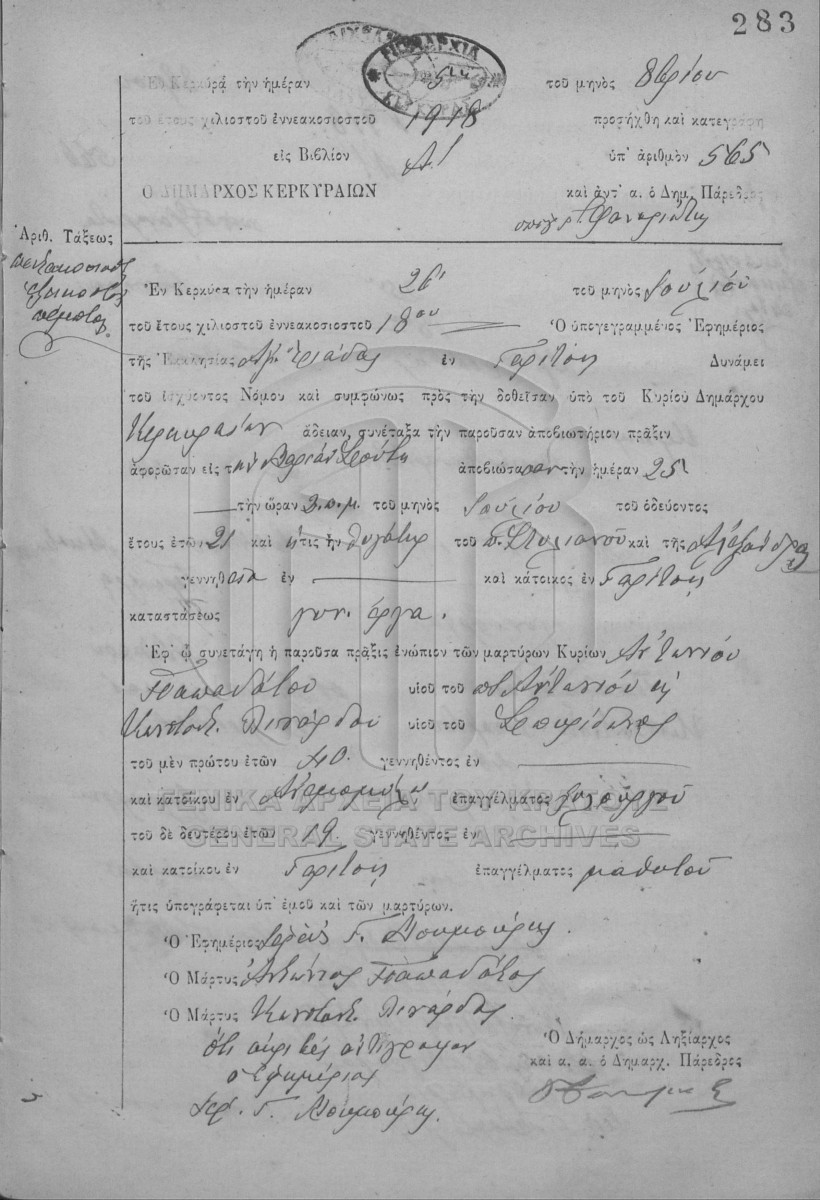 283
ΔΗΜΑΡΧΙΑ
Ἐν Κερκύρᾳ τὴν ἡμέραν 5 τοῦ μηνὸς 8βρίου
τοῦ ἔτους χιλιοστοῦ ἐννεακοσιοστοῦ 1918 προσήχθη καὶ κατεγράφη
εἰς Βιβλίον Α! ὑπ' ἀριθμὸν 565
Ο ΔΗΜΑΡΧΟΣ ΚΕΡΚΥΡΑΙΩΝ καὶ ἀντ' α. ὁ Δημ. Πάρεδρος
Ἀριθ. Τάξεως
πεντακοσιοστὸς
ἑξηκοστὸς
πέμπτος
Ἐν Κερκύρα τὴν ἡμέραν 26 τοῦ μηνὸς Ἰουλίου
τοῦ ἔτους χιλιοστοῦ ἐννεακοσιοστοῦ 18ου Ὁ ὑπογεγραμμένος Ἐφημέριος
τῆς Ἐκκλησίας Ἁγ. Τριάδος ἐν Γαρίτσῃ Δυνάμει
τοῦ ἰσχύοντος Νόμου καὶ συμφώνως πρὸς τὴν δοθεῖσαν ὑπὸ τοῦ Κυρίου Δημάρχου
Κερκυραίων ἄδειαν, συνέταξα τὴν παροῦσαν ἀποβιωτήριον πρᾶξιν
ἀφορῶσαν εἰς τὴν ἀποβιώσασαν τὴν ἡμέραν 25
τὴν ὥραν 3 π.μ. τοῦ μηνὸς Ἰουλίου τοῦ ὁδεύοντος
ἔτους ἐτῶν 21 καὶ ἥτις ἦν θυγάτηρ τοῦ π. Στυλιανοῦ καὶ τῆς Ἀλεξάνδρας
γεννηθεῖσα ἐν καὶ κάτοικος ἐν Γαρίτσῃ
καταστάσεως
Ἐφ' ᾧ συνετάγη ἡ παροῦσα πρᾶξις ἐνώπιον τῶν μαρτύρων Κυρίων Ἀντωνίου
Παπαδάτου υἱοῦ τοῦ ποτ Ἀντωνίου κ
Κωνσταντ. Λινάρδου υἱοῦ τοῦ Σπυρίδωνος
τοῦ μὲν πρώτου ἐτῶν 40. γεννηθέντος ἐν
καὶ κατοίκου ἐν Ἀνεμομύλῳ ἐπαγγέλματος ξυλουργοῦ
ΓΕΝΙΚΑ ΑΡΧΕΙΑ ΤΟΥ ΚΡΑΤΟΥΣ
GENERAL STATE ARCHIVES
τοῦ δὲ δευτέρου ἐτῶν 19 γεννηθέντος ἐν
καὶ κατοίκου ἐν Γαρίτσῃ ἐπαγγέλματος μαθητοῦ
ἥτις ὑπογράφεται ὑπ' ἐμοῦ καὶ τῶν μαρτύρων.
Ὁ Ἐφημέριος Ἱερεὺς Γ.
Ὁ Μάρτυς Ἀντώνιος Παπαδάτος
Ὁ Μάρτυς Κωνσταντ. Λινάρδος
ὅτι ἀκριβὲς ἀντίγραφον
ὁ Ἐφημέριος
Ἱερ. Γ.
Ὁ Δήμαρχος ὡς Ληξίαρχος
καὶ α. α. ὁ Δημαρχ. Πάρεδρος